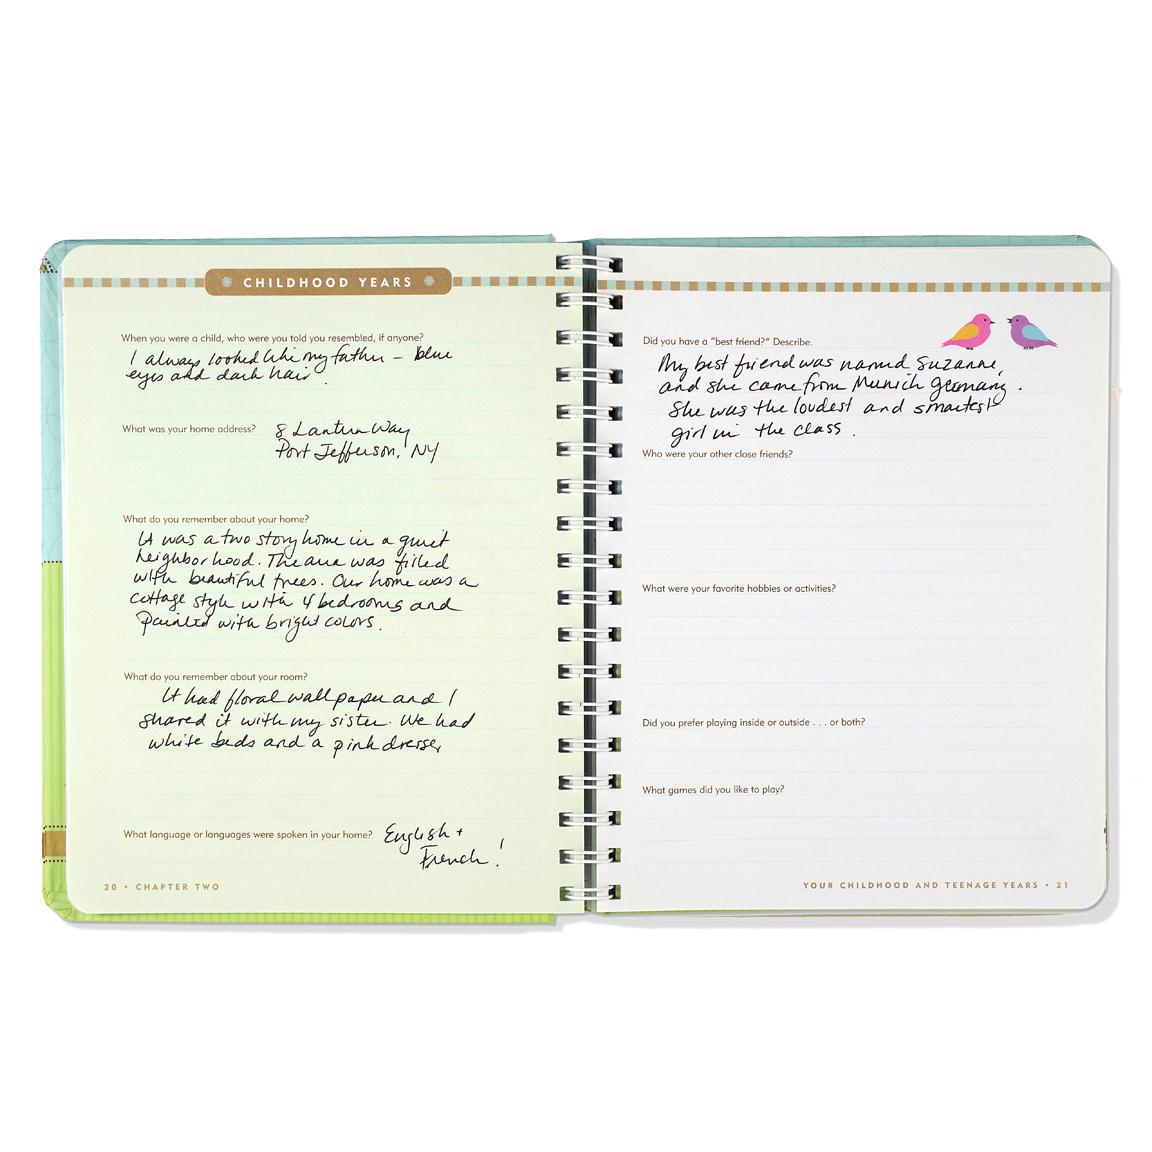 CHILDHOOD YEARS
When you were a child, who were you told you resembled, if anyone?
I always looked like my father – blue
eyes and dark hair.
What was your home address? 8 Lantern Way
Port Jefferson, NY
What do you remember about your home?
It was a two story home in a quiet
neighborhood. The area was filled
with beautiful trees. Our home was a
cottage style with 4 bedrooms and
painted with bright colors.
What do you remember about your room?
It had floral wallpaper and I
shared it with my sister. We had
white beds and a pink dresser
What language or languages were spoken in your home? English +
French!
20 • CHAPTER TWO
Did you have a "best friend?" Describe.
My best friend was named Suzanne,
and she came from Munich Germany.
She was the loudest and smartest
girl in the class.
Who were your other close friends?
What were your favorite hobbies or activities?
Did you prefer playing inside or outside . . . or both?
What games did you like to play?
YOUR CHILDHOOD AND TEENAGE YEARS • 21